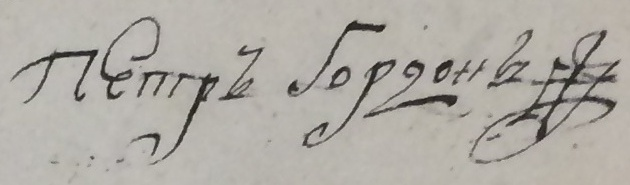 Петръ Гордонъ